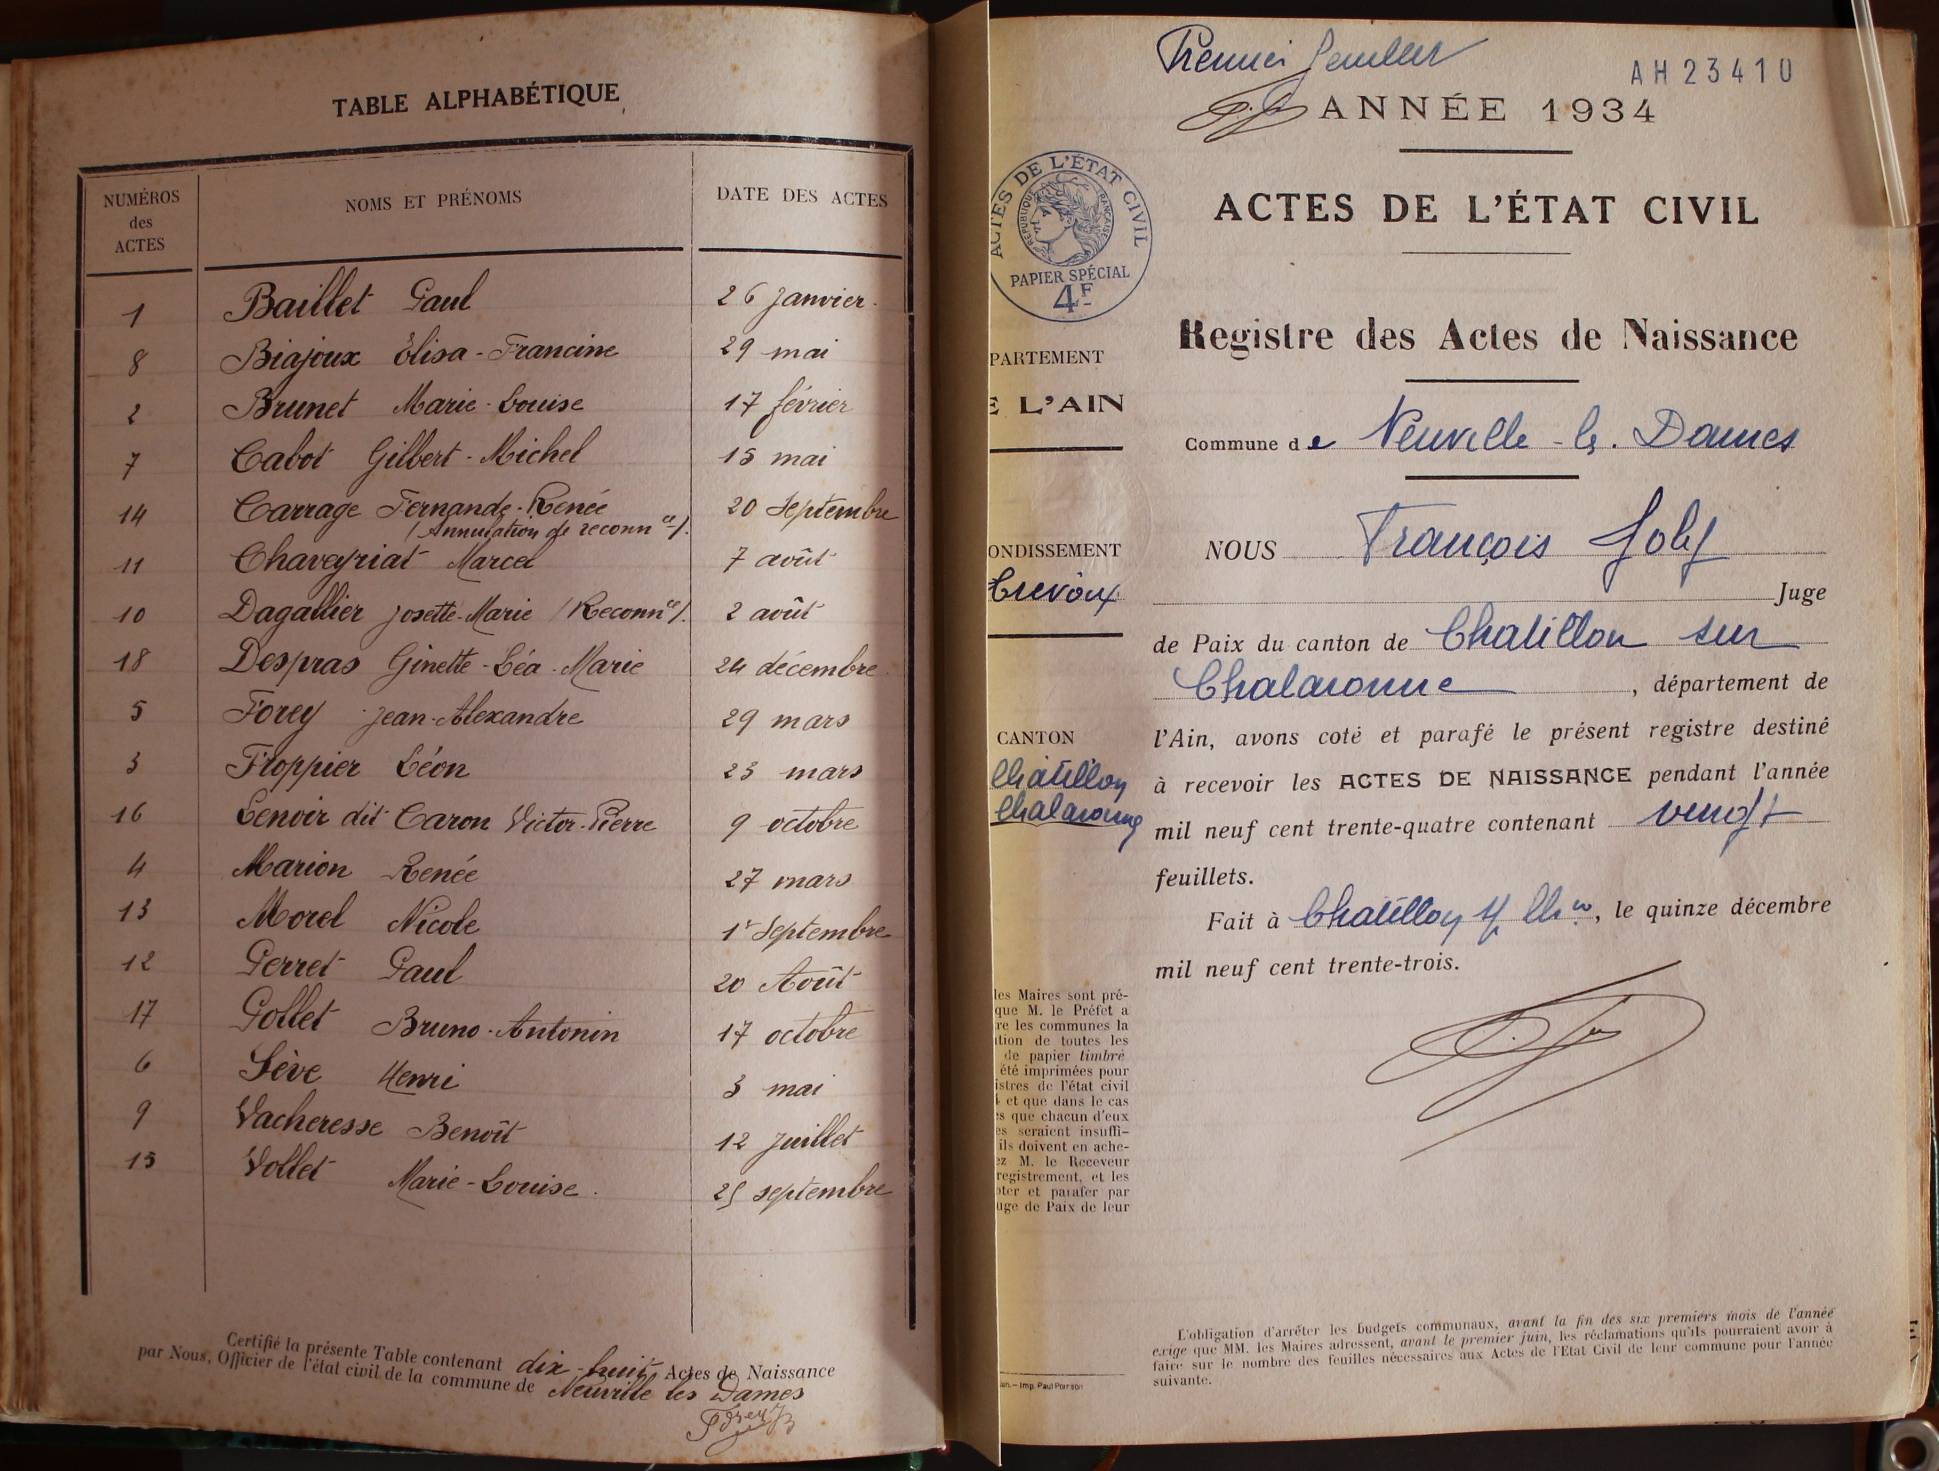 TABLE ALPHABÉTIQUE
NUMÉROS des ACTES NOMS ET PRÉNOMS DATE DES ACTES
1 Baillet Paul 26 janvier.
8 Biajoux Élisa-Francine 29 mai
2 Brunet Marie-Louise 17 février
7 Cabot Gilbert-Michel 15 mai
14 Carrage Fernande-Renée 20 Septembre
(Annulation de reconn ce)
11 Chaveyriat Marcel 7 août
10 Dagallier Josette-Marie (Reconn ce) 2 août
18 Despras Ginette-Léa-Marie 24 décembre
5 Forey Jean-Alexandre 29 mars
3 Froppier Léon 23 mars
16 Lenoir dit Caron Victor-Pierre 9 octobre
4 Marion Renée 27 mars
13 Morel Nicole 1r Septembre
12 Perret Paul 20 Août
17 Pollet Bruno-Antonin 17 octobre
6 Sève Henri 3 mai
9 Vacheresse Benoît 12 juillet
15 Vollet Marie-Louise. 25 septembre
Certifié la présente Table contenant dix-huit Actes de Naissance
par Nous, Officier de l'état civil de la commune de Neuville les Dames
Premier feuillet
AH23410
ANNÉE 1934
ACTES DE L'ÉTAT CIVIL
RÉPUBLIQUE FRANÇAISE
PAPIER SPÉCIAL
4F
ACTES DE L'ÉTAT CIVIL
Registre des Actes de Naissance
PARTEMENT
E L'AIN
Commune de Neuville-les-Dames
ONDISSEMENT
Trévoux
NOUS François Joly
Juge
de Paix du canton de Chatillon sur
Chalaronne, département de
CANTON
Châtillon
Chalaronne
l'Ain, avons coté et parafé le présent registre destiné
à recevoir les ACTES DE NAISSANCE pendant l'année
mil neuf cent trente-quatre contenant vingt
feuillets.
Fait à Châtillon s/ Chne, le quinze décembre
mil neuf cent trente-trois.
les Maires sont pré-
que M. le Préfet a
re les communes la
ition de toutes les
de papier timbré
été imprimées pour
istres de l'état civil
et que dans le cas
s que chacun d'eux
es seraient insuffi-
ils doivent en ache-
ez M. le Receveur
registrement, et les
oter et parafer par
uge de Paix de leur
Imp. Paul Poirson
L'obligation d'arrêter les budgets communaux, avant la fin des six premiers mois de l'année
exige que MM. les Maires adressent, avant le premier juin, les réclamations qu'ils pourraient avoir à
faire sur le nombre des feuilles nécessaires aux Actes de l'État Civil de leur commune pour l'année
suivante.